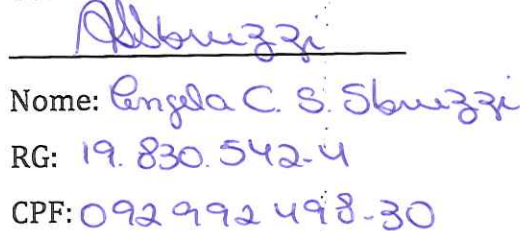 Nome: Angela C. S. Sbruzzi
RG: 19.830.542-4
CPF: 092 992 498-30